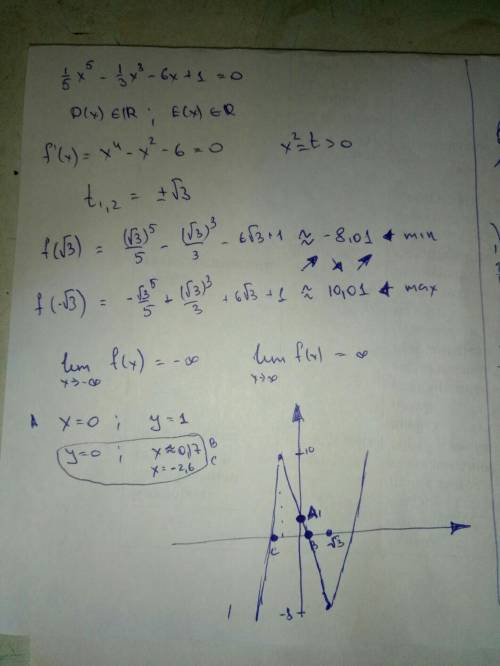 1/5 x⁵ - 1/3 x³ - 6x + 1 = 0
D(x) ∈ ℝ ; E(x) ∈ ℝ
f'(x) = x⁴ - x² - 6 = 0 x² = t > 0
t₁,₂ = ±√3
f(√3) = (√3)⁵/5 - (√3)³/3 - 6√3 + 1 ≈ -8,01 min
f(-√3) = -√3⁵/5 + (√3)³/3 + 6√3 + 1 ≈ 10,01 max
lim x→-∞ f(x) = -∞ lim x→∞ f(x) = ∞
x=0 ; y=1
y=0 ; x≈0,7 B
x=-2,6 C
10
A 1
C B √3
-8